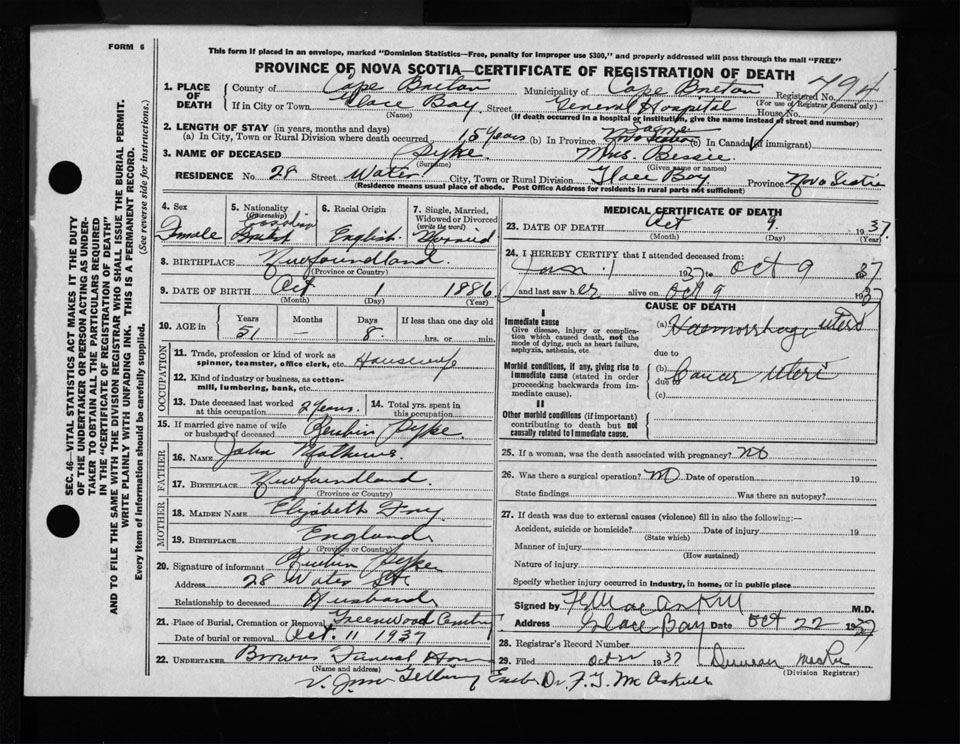 FORM 6
This form if placed in an envelope, marked "Dominion Statistics—Free, penalty for improper use $300," and properly addressed will pass through the mail "FREE"
PROVINCE OF NOVA SCOTIA—CERTIFICATE OF REGISTRATION OF DEATH
SEC. 46—VITAL STATISTICS ACT MAKES IT THE DUTY
OF THE UNDERTAKER OR PERSON ACTING AS UNDER-
TAKER TO OBTAIN ALL THE PARTICULARS REQUIRED
IN THE "CERTIFICATE OF REGISTRATION OF DEATH"
AND TO FILE THE SAME WITH THE DIVISION REGISTRAR WHO SHALL ISSUE THE BURIAL PERMIT.
WRITE PLAINLY WITH UNFADING INK. THIS IS A PERMANENT RECORD.
Every item of information should be carefully supplied. (See reverse side for instructions.)
1. PLACE OF DEATH County of Cape Breton Municipality of Cape Breton Registered No. 794
(For use of Registrar General only)
If in City or Town Glace Bay Street General Hospital House No.
(Name) (If death occurred in a hospital or institution, give the name instead of street and number)
2. LENGTH OF STAY (in years, months and days)
(a) In City, Town or Rural Division where death occurred 15 years (b) In Province Same Nova Scotia (c) In Canada (if immigrant)
3. NAME OF DECEASED Pyke Mrs. Bessie
(Surname) (Given name or names)
RESIDENCE No. 28 Street Water City, Town or Rural Division Glace Bay Province Nova Scotia
(Residence means usual place of abode. Post Office Address for residents in rural parts not sufficient)
4. Sex 5. Nationality (Citizenship) 6. Racial Origin 7. Single, Married, Widowed or Divorced (write the word)
Female British English Married
8. BIRTHPLACE Newfoundland
(Province or Country)
9. DATE OF BIRTH Oct 1 1886
(Month) (Day) (Year)
10. AGE in Years Months Days If less than one day old
51 – 8 hrs. or min.
OCCUPATION
11. Trade, profession or kind of work as spinner, teamster, office clerk, etc. Housewife
12. Kind of industry or business, as cotton-mill, lumbering, bank, etc.
13. Date deceased last worked at this occupation 2 years 14. Total yrs. spent in this occupation
15. If married give name of wife or husband of deceased Reubin Pyke
FATHER
16. NAME John Mathews
17. BIRTHPLACE Newfoundland
(Province or Country)
MOTHER
18. MAIDEN NAME Elizabeth Fry
19. BIRTHPLACE England
(Province or Country)
20. Signature of informant Reubin Pyke
Address 28 Water St.
Relationship to deceased Husband
21. Place of Burial, Cremation or Removal Greenwood
Date of burial or removal Oct. 11 1937
22. UNDERTAKER Browns Funeral Home
(Name and address)
MEDICAL CERTIFICATE OF DEATH
23. DATE OF DEATH Oct 9 1937
(Month) (Day) (Year)
24. I HEREBY CERTIFY that I attended deceased from:
Jan 1 1937 to Oct 9 1937
and last saw her alive on Oct 9 1937
CAUSE OF DEATH
I
Immediate cause
Give disease, injury or complication which caused death, not the mode of dying, such as heart failure, asphyxia, asthenia, etc.
(a) Haemorrhage uteri
due to
Morbid conditions, if any, giving rise to immediate cause (stated in order proceeding backwards from immediate cause).
(b) Cancer Uteri
due to
(c)
II
Other morbid conditions (if important) contributing to death but not causally related to immediate cause.
25. If a woman, was the death associated with pregnancy? no
26. Was there a surgical operation? no Date of operation 19
State findings Was there an autopsy?
27. If death was due to external causes (violence) fill in also the following:—
Accident, suicide or homicide? Date of injury 19
(State which)
Manner of injury
(How sustained)
Nature of injury
Specify whether injury occurred in industry, in home, or in public place
Signed by M.D.
Address Glace Bay Date Oct 22 1937
28. Registrar's Record Number
29. Filed Oct 1937 Duncan
(Division Registrar)
Dr. F. T.